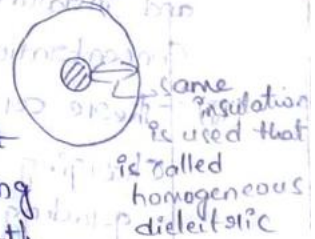 same
insulation
is used that
is called
ng homogeneous
dieleitric
th